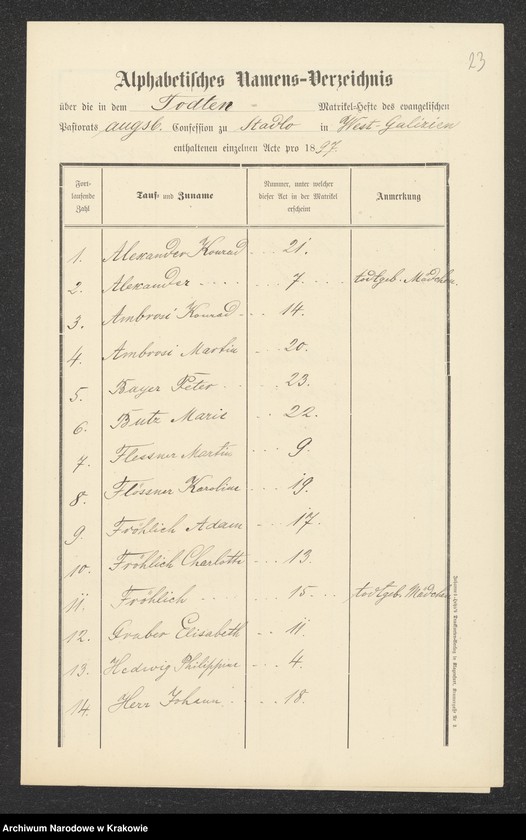 23
Alphabetisches Namens-Verzeichnis
über die in dem Todten - Matrikel-Hefte des evangelischen
Pastorats augsb. Confession zu Stadlo in West-Galizien
enthaltenen einzelnen Acte pro 1897.
Fort-laufende Zahl | Tauf- und Zuname | Nummer, unter welcher dieser Act in der Matrikel erscheint | Anmerkung
1. Alexander Konrad 21.
2. Alexander 7. todtgeb. Mädchen.
3. Ambrosi Konrad 14.
4. Ambrosi Martin 20.
5. Bayer Peter 23.
6. Butz Marie 22.
7. Flessner Martin 9.
8. Flössner Karoline 19.
9. Fröhlich Adam 17.
10. Fröhlich Charlotte 13.
11. Fröhlich 15. todtgeb. Mädchen
12. Graber Elisabeth 11.
13. Hedwig Philippine 4.
14. Herr Johann 18.
Archiwum Narodowe w Krakowie